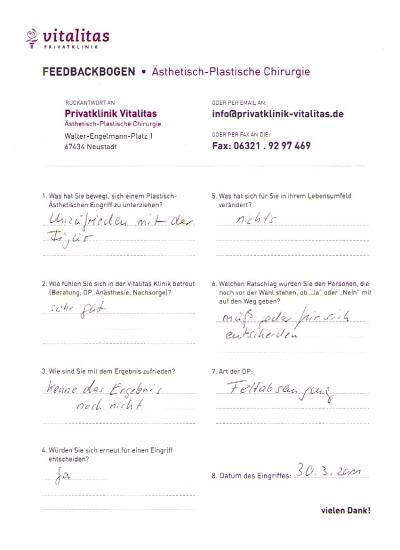 vitalitas
PRIVATKLINIK
FEEDBACKBOGEN • Ästhetisch-Plastische Chirurgie
RÜCKANTWORT AN
Privatklinik Vitalitas
Ästhetisch-Plastische Chirurgie
Walter-Engelmann-Platz 1
67434 Neustadt
ODER PER EMAIL AN:
info@privatklinik-vitalitas.de
ODER PER FAX AN DIE:
Fax: 06321 . 92 97 469
1. Was hat Sie bewegt, sich einem Plastisch-
Ästhetischen Eingriff zu unterziehen?
Unzufrieden mit der
Figur
2. Wie fühlen Sie sich in der Vitalitas Klinik betreut
(Beratung, OP, Anästhesie, Nachsorge)?
sehr gut
3. Wie sind Sie mit dem Ergebnis zufrieden?
kenne das Ergebnis
noch nicht
4. Würden Sie sich erneut für einen Eingriff
entscheiden?
Ja
5. Was hat sich für Sie in ihrem Lebensumfeld
verändert?
nichts
6. Welchen Ratschlag würden Sie den Personen, die
noch vor der Wahl stehen, ob „Ja" oder „Nein" mit
auf den Weg geben?
muß jeder für sich
entscheiden
7. Art der OP:
Fettabsaugung
8. Datum des Eingriffes: 30.3.2011
vielen Dank!